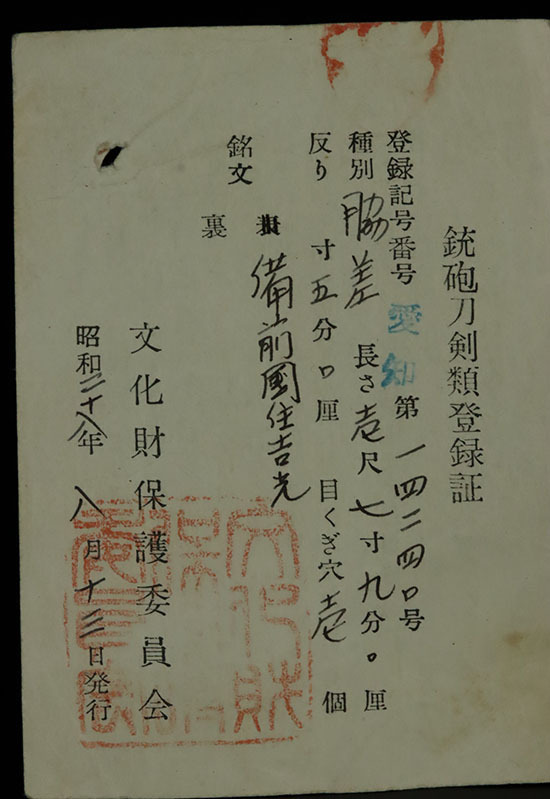 銃砲刀剣類登録証
登録記号番号 愛知 第一四二四〇号
種別 脇差 長さ壱尺七寸九分〇厘
反り 寸五分〇厘 目くぎ穴壱個
銘文 表 備前國住吉光
裏
文化財保護委員会
昭和二十八年八月十三日発行